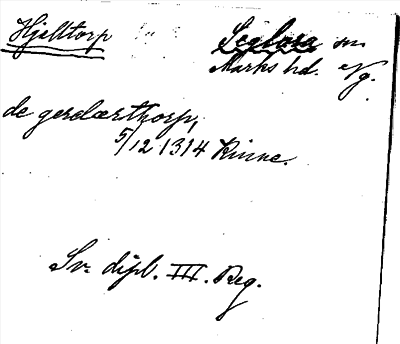 Hjälltorp
sn
Marks hd. Vg.
de gerdærthorp,
5/12 1314 Kinne.
Sv. dipl. III. Reg.